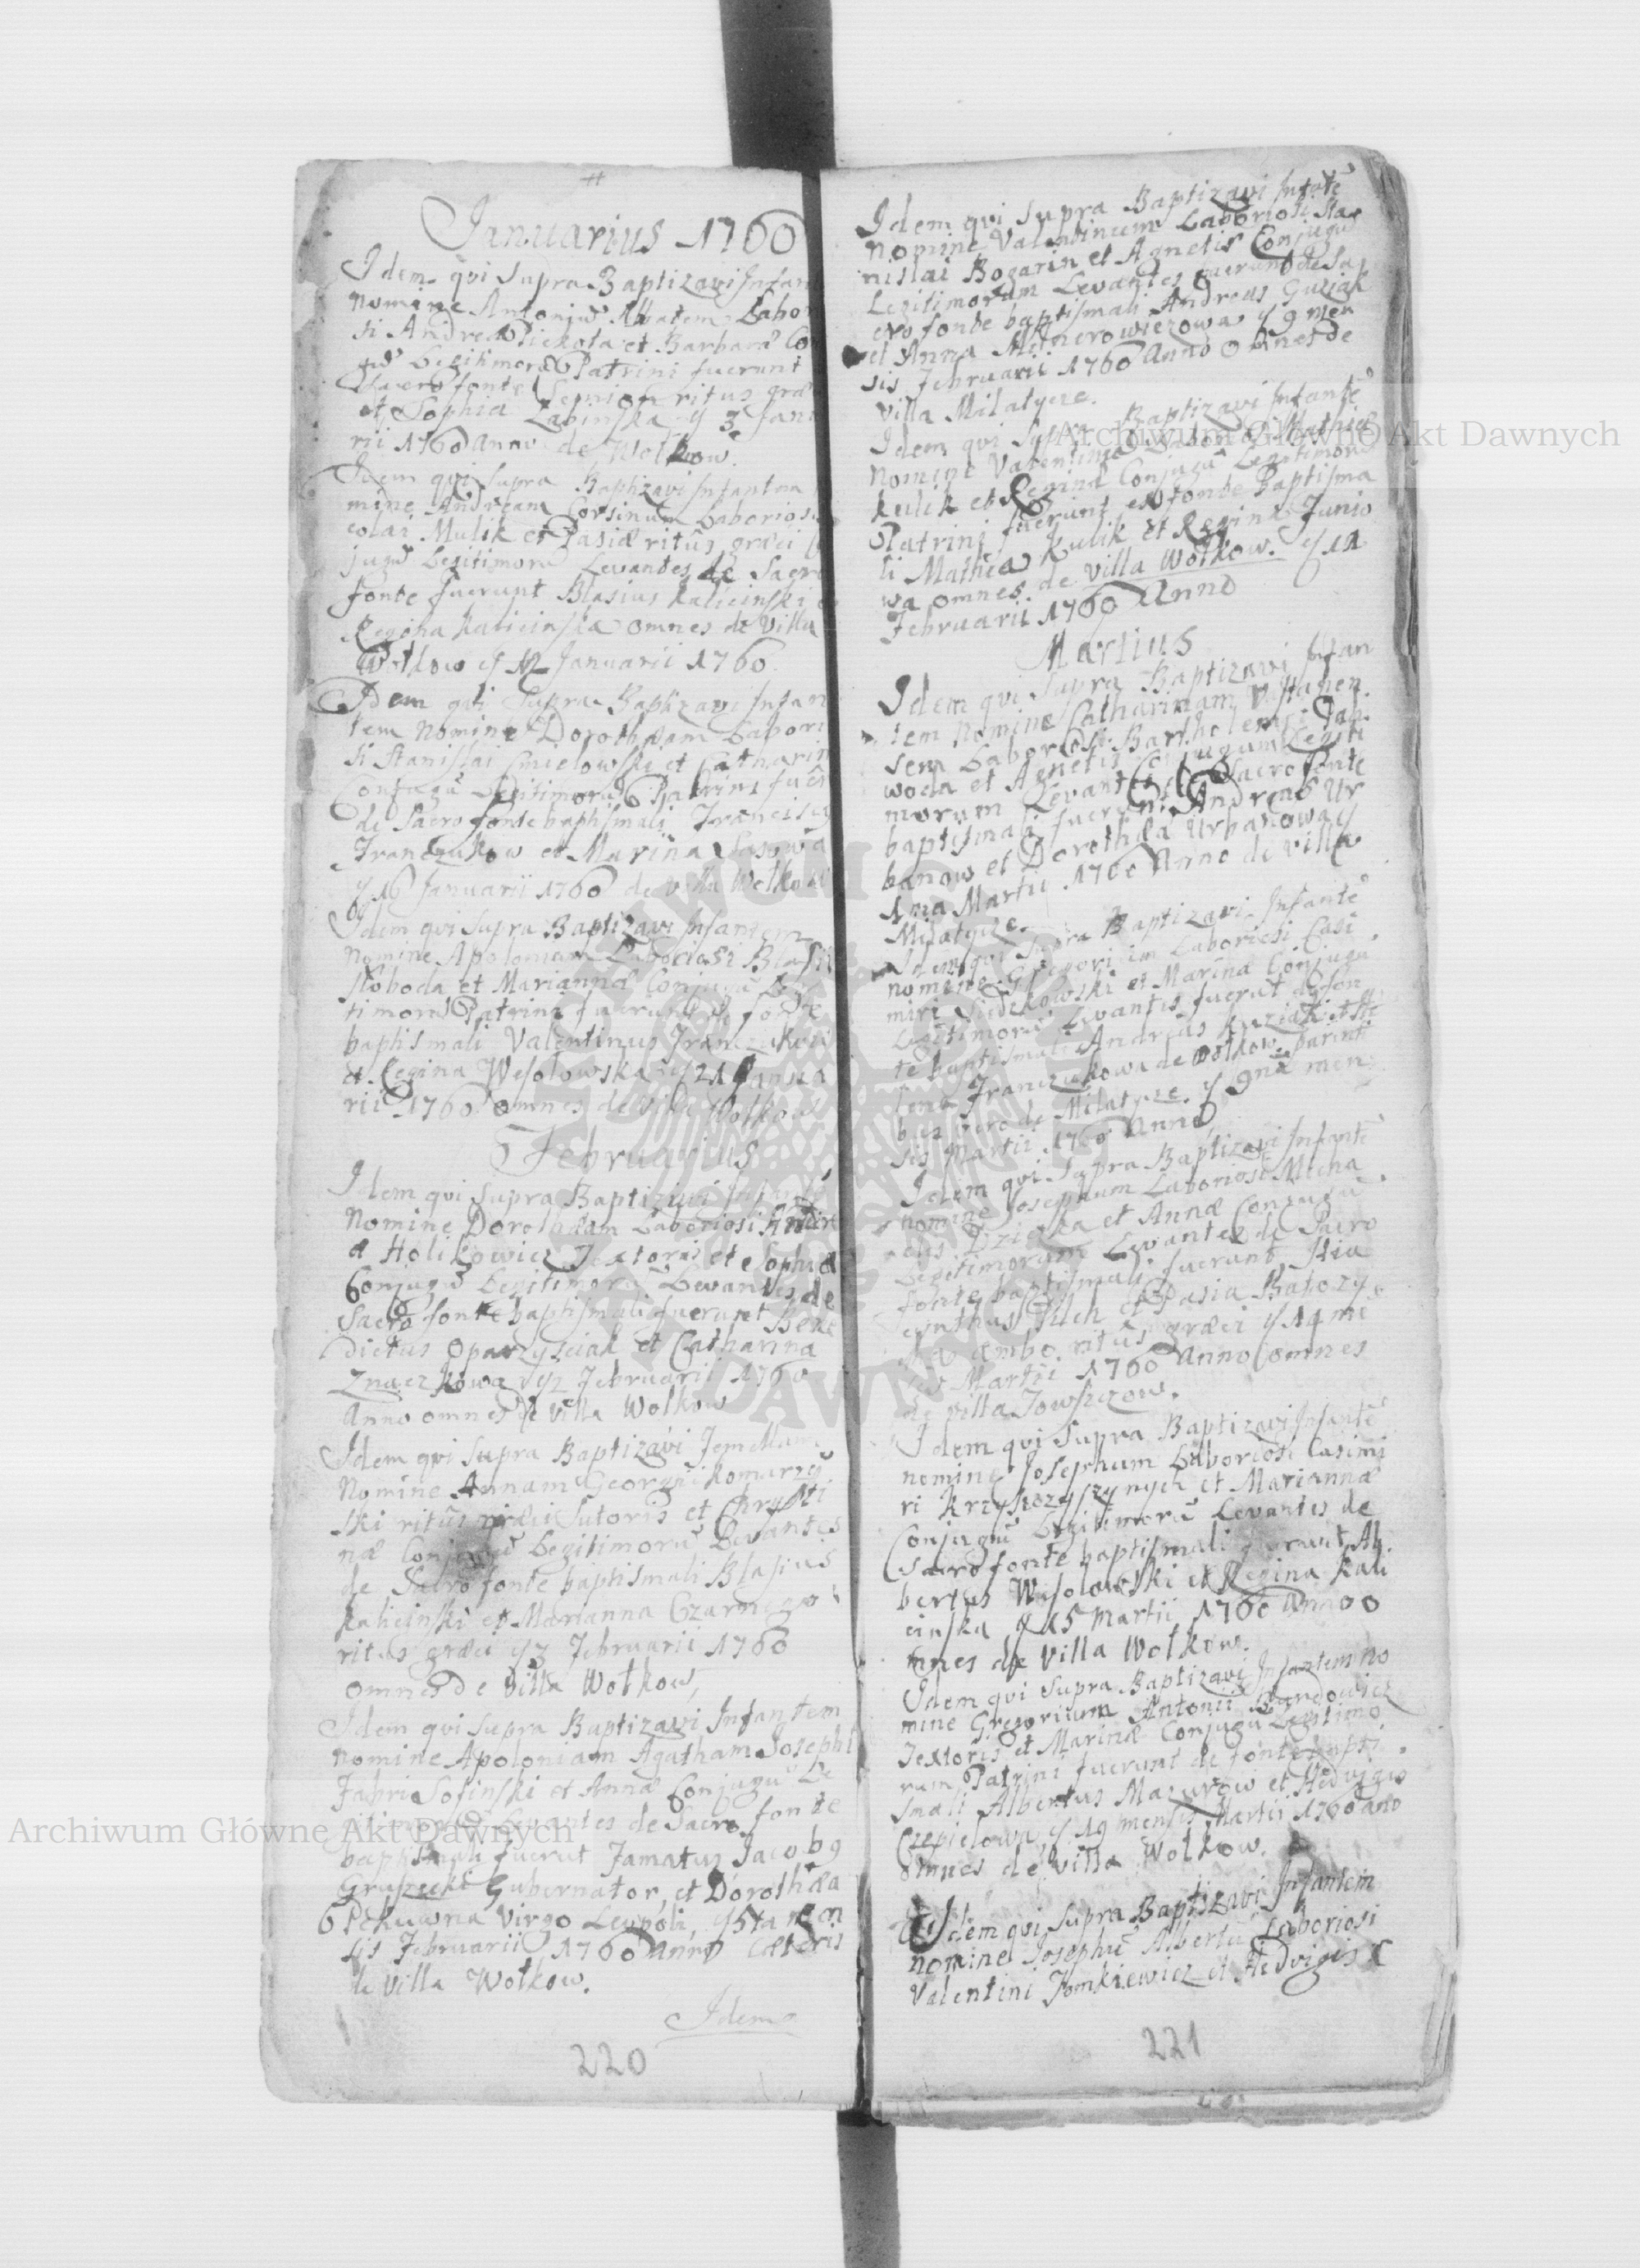 Januarius 1760
Idem qui supra Baptizavi Infan
Nomine Antoniū Abbatem Labor
si Andreæ Piekota et Barbaræ Co
gū Legitimorū Patrini fuerunt
sacro fonte Semion ritus græ
et Sophia Zabinska y 3 Janu
rii 1760 Anno de Wołkow.
Idem qui supra Baptizavi Infantem
mine Andream Corsinum Laborios
colai Mulik et Pasiæ ritûs græci
jugū Legitimorū Levantes de Sacro
fonte fuerunt Blasius Kalicinski et
Regina Kalicinska omnes de Villa
Wołkow y 12 Januarii 1760.
Idem qui Supra Baptizavi Infan
tem Nomine Dorothæam Labori
si Stanislai Cmielowski et Catharin
Conjugū Legitimorū Patrini fuer
de Sacro fonte baptismali Francisc
Franczukow et Marina Sasowa
y 16 Januarii 1760 de Villa Wołkow
Idem qui supra Baptizavi Infantem
Nomine Apoloniam Laboriosi Blasii
Słoboda et Mariannæ Conjugū Legi
timorū Patrini fuerunt de fonte
baptismali Valentinus Franczukow
et Regina Wesolowska y 21 Janua
rii 1760 omnes de Villa Wołkow
Februarius
Idem qui Supra Baptizavi Infantē
Nomine Dorothæam Laboriosi Andre
æ Holikowicz Textoris et Sophiæ
Conjugū Legitimorū Levantes de
Sacro fonte baptismali fuerunt Bene
dictus Oparzysciak et Catharina
Znaczkowa y 2 Februarii 1760
Anno omnes de Villa Wołkow
Idem qui Supra Baptizavi
Nomine Annam Georgii Komarzyn
ski ritûs græci Sutoris et Chrysti
næ Conjugū Legitimorū Levantes
de Sacro fonte baptismali Blasius
Kalicinski et Marianna Czarnego
ritus græci y 3 Februarii 1760
omnes de Villa Wołkow,
Idem qui supra Baptizavi Infantem
nomine Apoloniam Agatham Josephi
Fabri Sosinski et Annæ Conjugū Le
gitimorū Levantes de Sacro fonte
baptismali fuerut Famatus Jacobg
Gruszecki Gubernator, et Dorothæa
Virgo Leopoli, y 5ta men
sis Februarii 1760 Anno Cæteris
de Villa Wołkow.
Idem
220
Idem qui Supra Baptizavi Infantē
Nomine Valentinum Laboriosi Sta
nislai Bogarin et Agnetis Conjugū
Legitimorum Levantes fuerunt de Sa
cro fonte baptismali Andreas Guziak
et Anna Melnerowiczowa y 9 men
sis Februarii 1760 Anno omnes de
Villa Milatycze.
Idem qui Supra Baptizavi Infantē
Nomine Valentinū Laboriosi Mathiæ
Kulik et Reginæ Conjugū Legitimorū
Patrini fuerunt ex fonte Baptisma
li Mathæa Kulik et Regina Junio
wa omnes de Villa Wołkow. y 12
Februarii 1760 Anno
Martius
Idem qui Supra Baptizavi Infan
tem Nomine Catharinam
sem Laboriosi Bartholemei Jah
woda et Agnetis Conjugum Legiti
morum Levantes de Sacro fonte
baptismali fuerunt Andreas Ur
banow et Dorothæa Urbanowa y
1ma Martii 1760 Anno de Villa
Milatycze.
Idem qui Supra Baptizavi Infantē
nomine Gregorium Laboriosi Casi
miri Sudzkowski et Marinæ Conjugū
Legitimorū Levantes fuerut de fon
te baptismali Andreas Kuziak et He
lena Franczukowa de Wołkow parinti
bus vero de Milatycze y 9na men
sis Martii 1760 Anno
Idem qui Supra Baptizavi Infantē
nomine Josephum Laboriosi Micha
elis Dziecka et Annæ Conjugū
Legitimorum Levantes de Sacro
fonte baptismali fuerunt Hia
cynthus Pilch et Pasia Batozy
ambo ritûs græci y 14 me
sis Martii 1760 Anno omnes
de Villa Towszczow.
Idem qui Supra Baptizavi Infantē
nomine Josephum Laboriosi Casimi
ri Krzyszczyszynych et Mariannæ
Conjugū Legitimorū Levantes de
Sacro fonte baptismali fuerunt Al
bertus Wesolowski et Regina Kali
cinska y 15 Martii 1760 Anno o
mnes de Villa Wołkow.
Idem qui Supra Baptizavi Infantem No
mine Gregorium Antonii Bandowicz
Textoris et Marinæ Conjugū Legitimo
rum Patrini fuerunt de fonte bapti
smali Albertus Mazurow et Hedvigis
Czepielowa y 19 mensis Martii 1760 ano
omnes de Villa Wołkow.
Idem qui Supra Baptizavi Infantem
nomine Josephū Albertū Laboriosi
Valentini Tomkiewicz et Hedvigis C
221
Archiwum Główne Akt Dawnych
Archiwum Główne Akt Dawnych